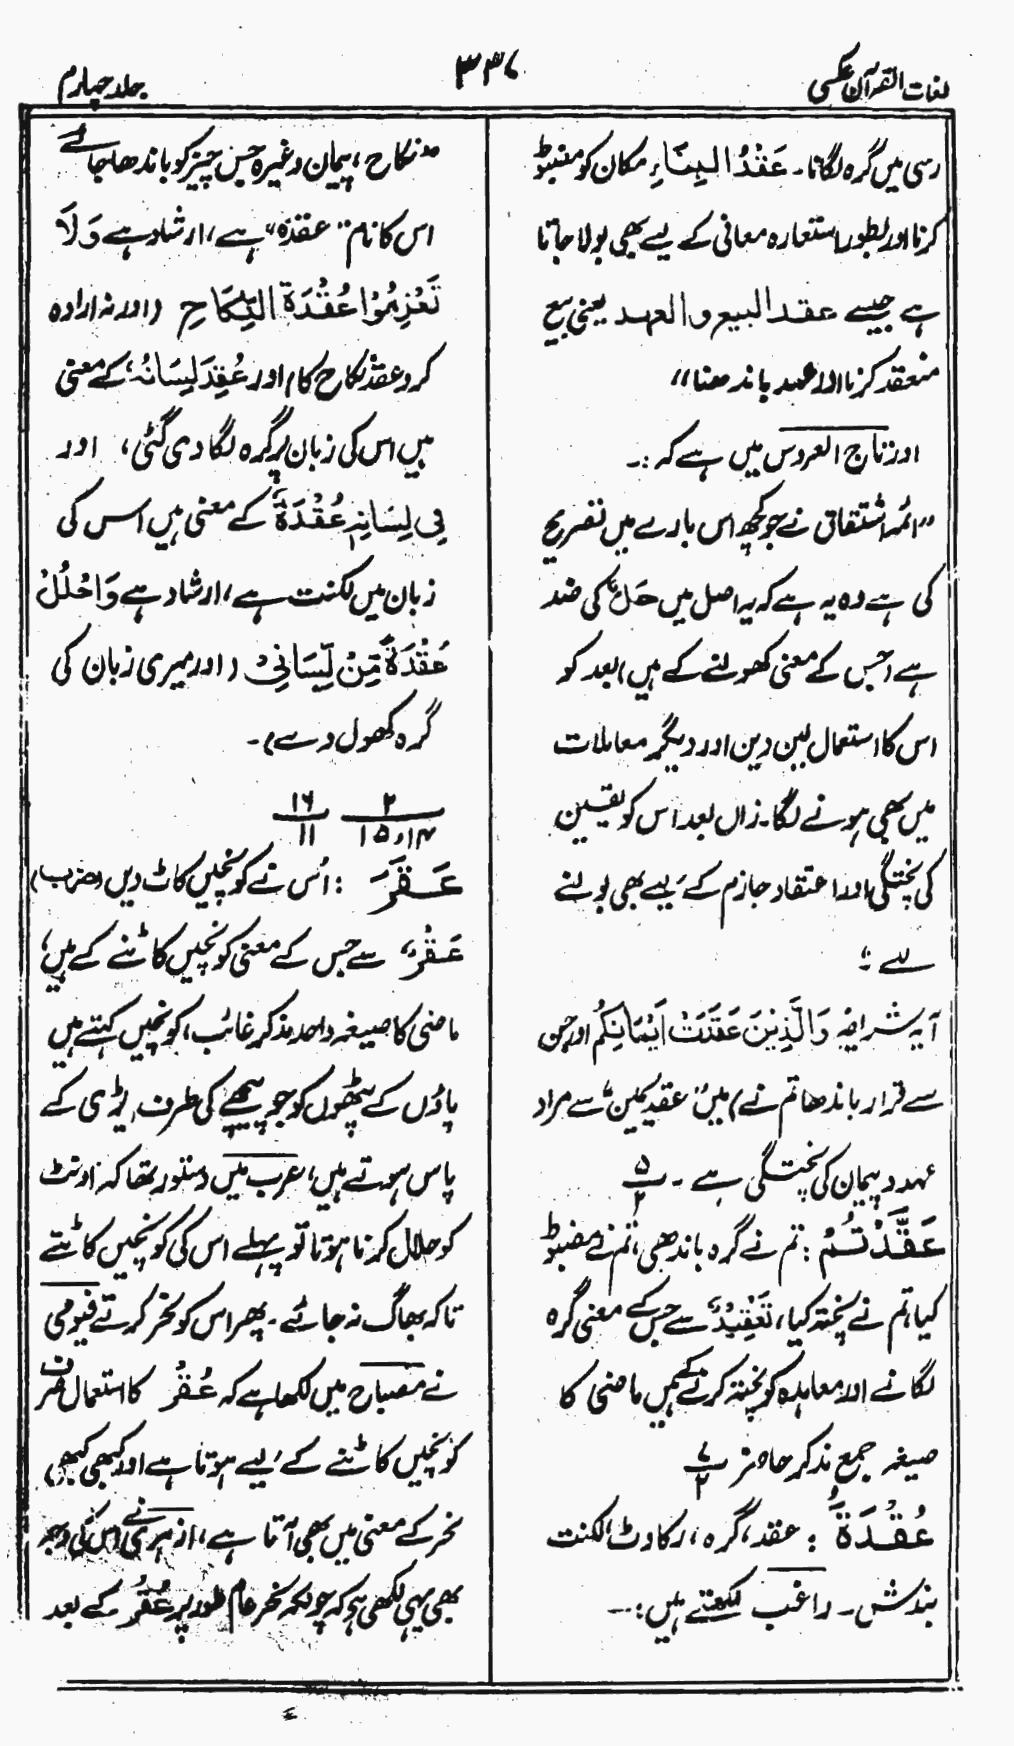 لغات القرآن عکسی
۳۳۷
جلد چہارم
رسی میں گرہ لگانا۔ عَقْدُ الْبِنَاءِ مکان کو مضبوط
کرنا اور بطور استعارہ معانی کے لیے بھی بولا جاتا
ہے جیسے عقد البیع والعہد یعنی بیع
منعقد کرنا اور عہد باندھنا"
اور تاج العروس میں ہے کہ :۔
"ائمہ اشتقاق نے جو کچھ اس بارے میں تصریح
کی ہے وہ یہ ہے کہ یہ اصل میں حَلٌّ کی ضد
ہے (جس کے معنی کھولنے کے ہیں) بعد کو
اس کا استعمال لین دین اور دیگر معاملات
میں بھی ہونے لگا۔ زاں بعد اس کو یقین
کی پختگی اور اعتقاد جازم کے لیے بھی بولنے
لگے :
آیۂ شریفہ وَالَّذِيْنَ عَقَدَتْ اَيْمَانُكُمْ (اور جن
سے قرار باندھا تم نے) میں "عقدِ یمین" سے مراد
عہد و پیمان کی پختگی ہے۔ ۵/۲
عَقَّدْتُّمْ : تم نے گرہ باندھی، تم نے مضبوط
کیا، تم نے پختہ کیا، تَعْقِيْدٌ سے جس کے معنی گرہ
لگانے اور معاہدہ کو پختہ کرنے کے ہیں ماضی کا
صیغہ جمع مذکر حاضر ۷/۲
عُقْدَةٌ : عقد، گرہ، رکاوٹ، لکنت
بندش۔ راغب لکھتے ہیں :۔
"نکاح، پیمان وغیرہ جس چیز کو باندھا جائے
اس کا نام "عقدہ" ہے، ارشاد ہے وَلَا
تَعْزِمُوْا عُقْدَةَ النِّكَاحِ (اور نہ ارادہ
کرو عقد نکاح کا) اور عُقِدَ لِسَانُهٗ کے معنی
ہیں اس کی زبان پر گرہ لگا دی گئی، اور
فِيْ لِسَانِهٖ عُقْدَةٌ کے معنی ہیں اس کی
زبان میں لکنت ہے، ارشاد ہے وَاحْلُلْ
عُقْدَةً مِّنْ لِّسَانِيْ (اور میری زبان کی
گرہ کھول دے)۔
۲/۱۴و۱۵ ۱۶/۱۱
عَقَرَ : اُس نے کونچیں کاٹ دیں (ضرب)
عَقْرٌ سے جس کے معنی کونچیں کاٹنے کے ہیں،
ماضی کا صیغہ واحد مذکر غائب، کونچیں کہتے ہیں
پاؤں کے پٹھوں کو جو پیچھے کی طرف ایڑی کے
پاس ہوتے ہیں، عرب میں دستور تھا کہ اونٹ
کو حلال کرنا ہوتا تو پہلے اس کی کونچیں کاٹتے
تاکہ بھاگ نہ جائے۔ پھر اس کو نحر کرتے فیومی
نے مصباح میں لکھا ہے کہ عُقْر کا استعمال صرف
کونچیں کاٹنے کے لیے ہوتا ہے اور کبھی کبھی
نحر کے معنی میں بھی آتا ہے، ازہری نے اس کی وجہ
بھی یہی لکھی ہے کہ چونکہ نحر عام طور پر عُقْر کے بعد